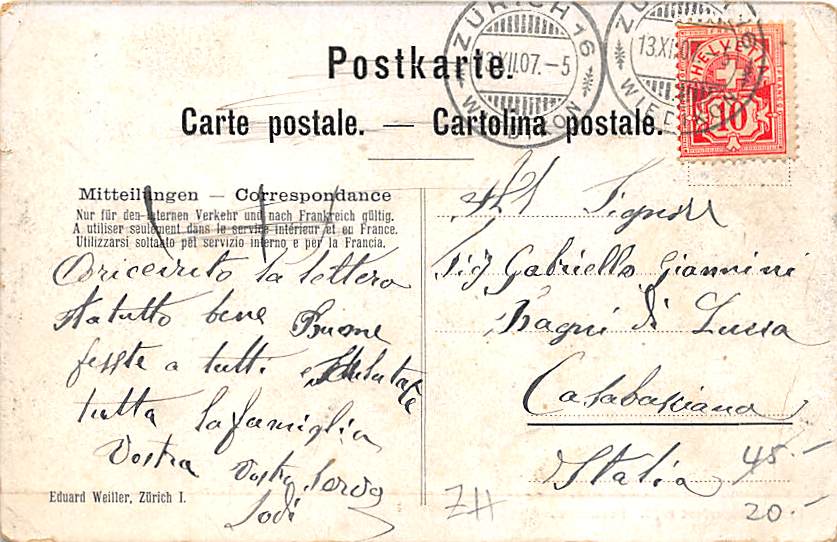 Postkarte.
Carte postale. — Cartolina postale.
ZÜRICH 16
13.XII.07.-5
WIEDIKON
ZÜRICH
13.XI
WIEDIKON
HELVETIA
FRANCO
10
Mitteilungen — Correspondance
Nur für den internen Verkehr und nach Frankreich gültig.
A utiliser seulement dans le service intérieur et en France.
Utilizzarsi soltanto pel servizio interno e per la Francia.
O ricevuto la lettera
sta tutto bene Buone
feste a tutti e salutate
tutta la famiglia
Vostra Vostra serva
Signore
Sig Gabriello Giannini
Bagni di Lucca
Casabasciana
Italia
Eduard Weiller, Zürich I.
ZH
45.-
20.-